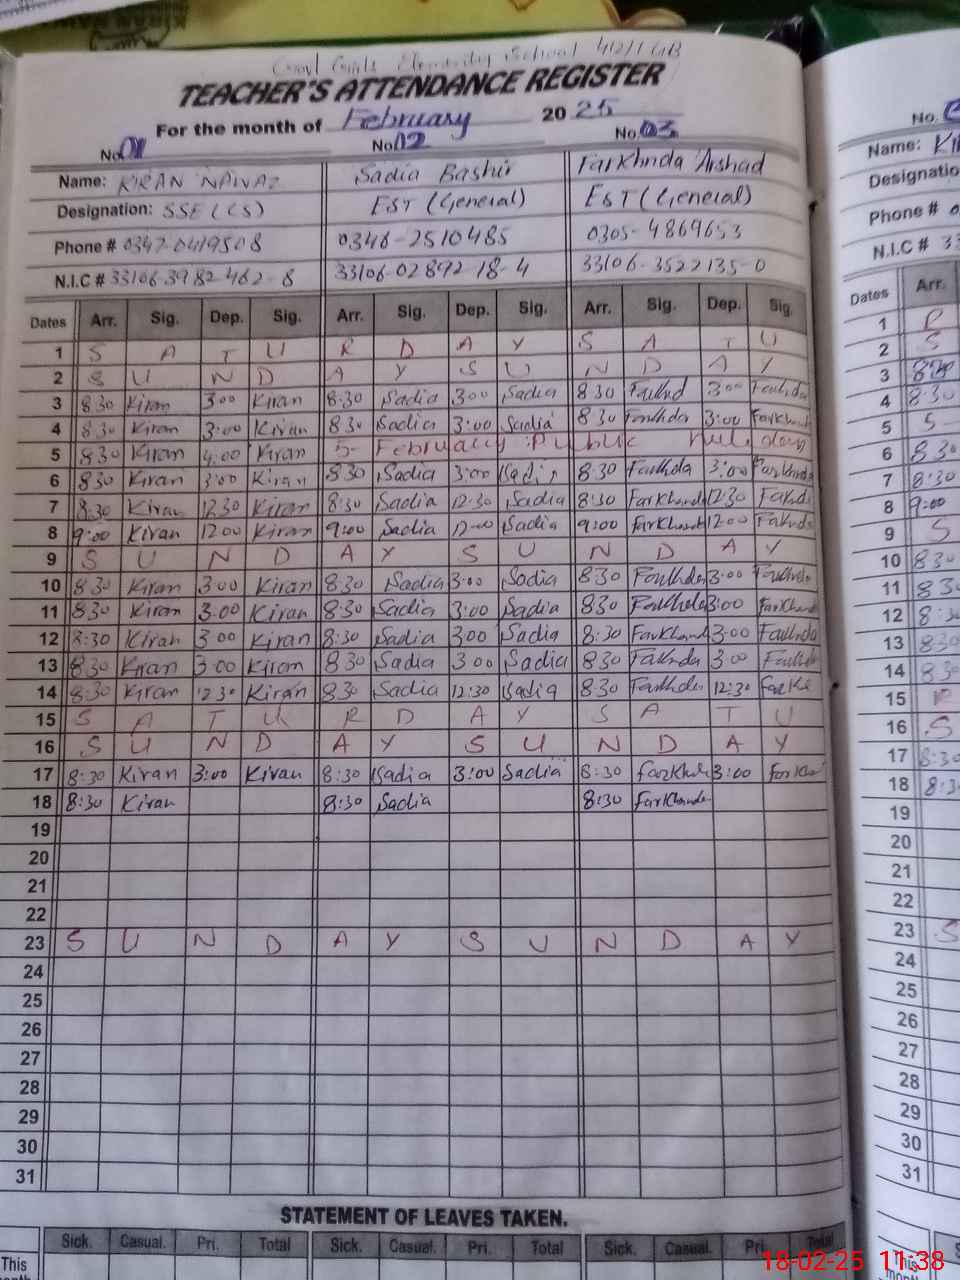 Govt Girls Elementary School 412/1 GB
TEACHER'S ATTENDANCE REGISTER
For the month of February 2025
No. 01 No. 02 No. 03
Name: KIRAN NAWAZ Sadia Bashir Farkhnda Arshad
Designation: SSE (CS) EST (General) EST (General)
Phone # 0347-0419508 0346-2510485 0305-4869653
N.I.C # 33106-3982462-8 33106-02892 18-4 33106-3522135-0
Dates Arr. Sig. Dep. Sig. Arr. Sig. Dep. Sig. Arr. Sig. Dep. Sig.
1 S A T U R D A Y S A T U
2 S U N D A Y S U N D A Y
3 8:30 Kiran 3:00 Kiran 8:30 Sadia 3:00 Sadia 8:30 3:00
4 8:30 Kiran 3:00 Kiran 8:30 Sadia 3:00 Sadia 8:30 Farkhda 3:00
5 8:30 Kiran 4:00 Kiran 5- February Public Holiday
6 8:30 Kiran 3:00 Kiran 8:30 Sadia 3:00 Sadia 8:30 Farkhda 3:00 Farkhnda
7 8:30 Kiran 12:30 Kiran 8:30 Sadia 12:30 Sadia 8:30 FarKhanda 12:30
8 9:00 Kiran 12:00 Kiran 9:00 Sadia 12:00 Sadia 9:00 FarKhanda 12:00
9 S U N D A Y S U N D A Y
10 8:30 Kiran 3:00 Kiran 8:30 Sadia 3:00 Sadia 8:30 3:00
11 8:30 Kiran 3:00 Kiran 8:30 Sadia 3:00 Sadia 8:30 3:00 FarKhanda
12 8:30 Kiran 3:00 Kiran 8:30 Sadia 3:00 Sadia 8:30 FarKhand 3:00
13 8:30 Kiran 3:00 Kiran 8:30 Sadia 3:00 Sadia 8:30 3:00
14 8:30 Kiran 12:30 Kiran 8:30 Sadia 12:30 Sadia 8:30 12:30
15 S A T U R D A Y S A T U
16 S U N D A Y S U N D A Y
17 8:30 Kiran 3:00 Kiran 8:30 Sadia 3:00 Sadia 8:30 3:00
18 8:30 Kiran 8:30 Sadia 8:30 FarKhanda
19
20
21
22
23 S U N D A Y S U N D A Y
24
25
26
27
28
29
30
31
STATEMENT OF LEAVES TAKEN.
Sick. Casual. Pri. Total Sick. Casual. Pri. Total Sick. Casual. Pri. Total
This
month
No.
Name:
Designatio
Phone #
N.I.C # 33
Dates Arr.
1
2 S
3 8:30
4 8:30
5 5-
6 8:30
7 8:30
8 9:00
9 S
10 8:30
11 8:30
12 8:3
13 8:30
14 8:30
15
16 S
17 8:30
18 8:3
19
20
21
22
23 S
24
25
26
27
28
29
30
31
This
month
18-02-25 11:38